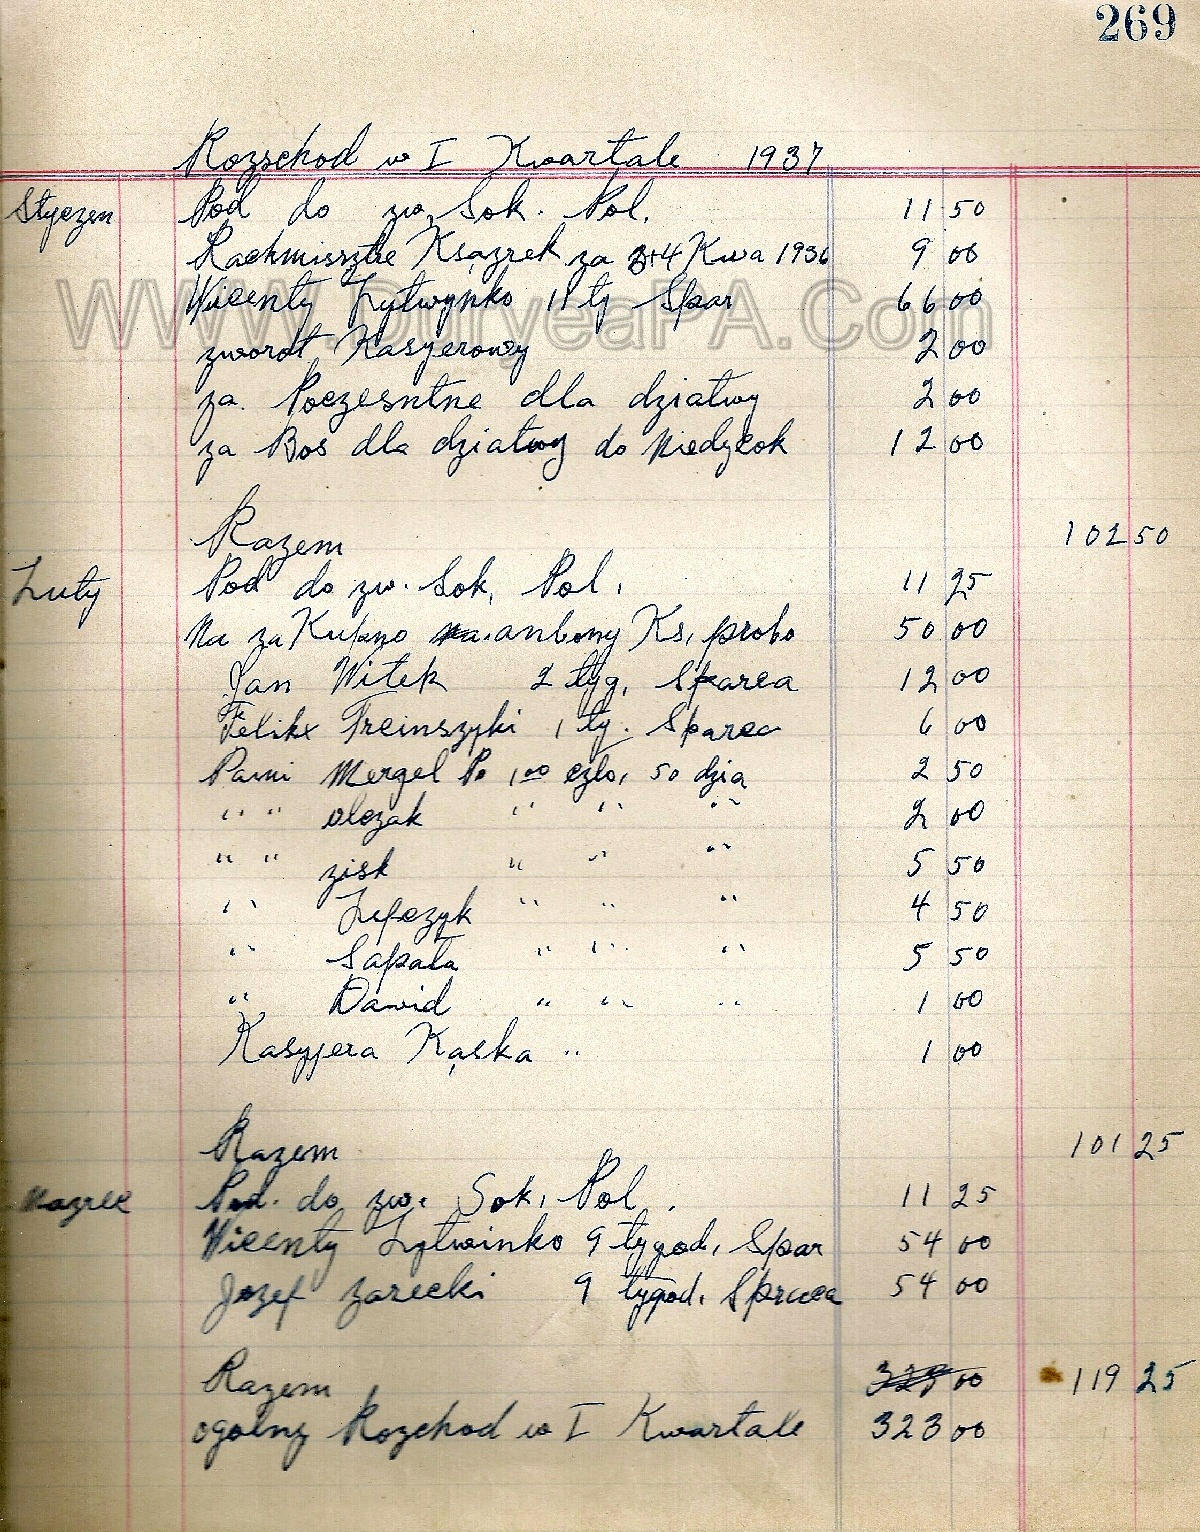 269
Rozschod w I Kwartale 1937
Styczen Pod do zw. Sok. Pol. 11 50
Rachmisrztre Ksązrek za 3+4 Kwa 1936 9 00
Wicenty Lytwynko 11 ty Spar 66 00
zworot Kasyerowy 2 00
za. Poczesntne dla dziatwy 2 00
za Bos dla dziatwy do 12 00
Razem 102 50
Luty Pod do zw. Sok. Pol. 11 25
Na za Kupno Ks. probo 50 00
Jan Witek 2 tyg. Sparca 12 00
Felikx Treinszyki 1 ty. Sparca 6 00
Pawi Mergel Po 1,00 czlo, 50 dzia 2 50
" " olczak " " " 2 00
" " zisk " " " 5 50
" Lupczyk " " " 4 50
" Sapała " " " 5 50
" Dawid " " " 1 00
Kasyjera Kąska " 1 00
Razem 101 25
Mazrec Pod. do zw. Sok. Pol. 11 25
Wicenty Lytwinko 9 tygod, Spar 54 00
Jozef Zarecki 9 tygod. Spraca 54 00
Razem 119 25
ogolny Rozchod w I Kwartale 323 00
WWW.DuryeaPA.Com